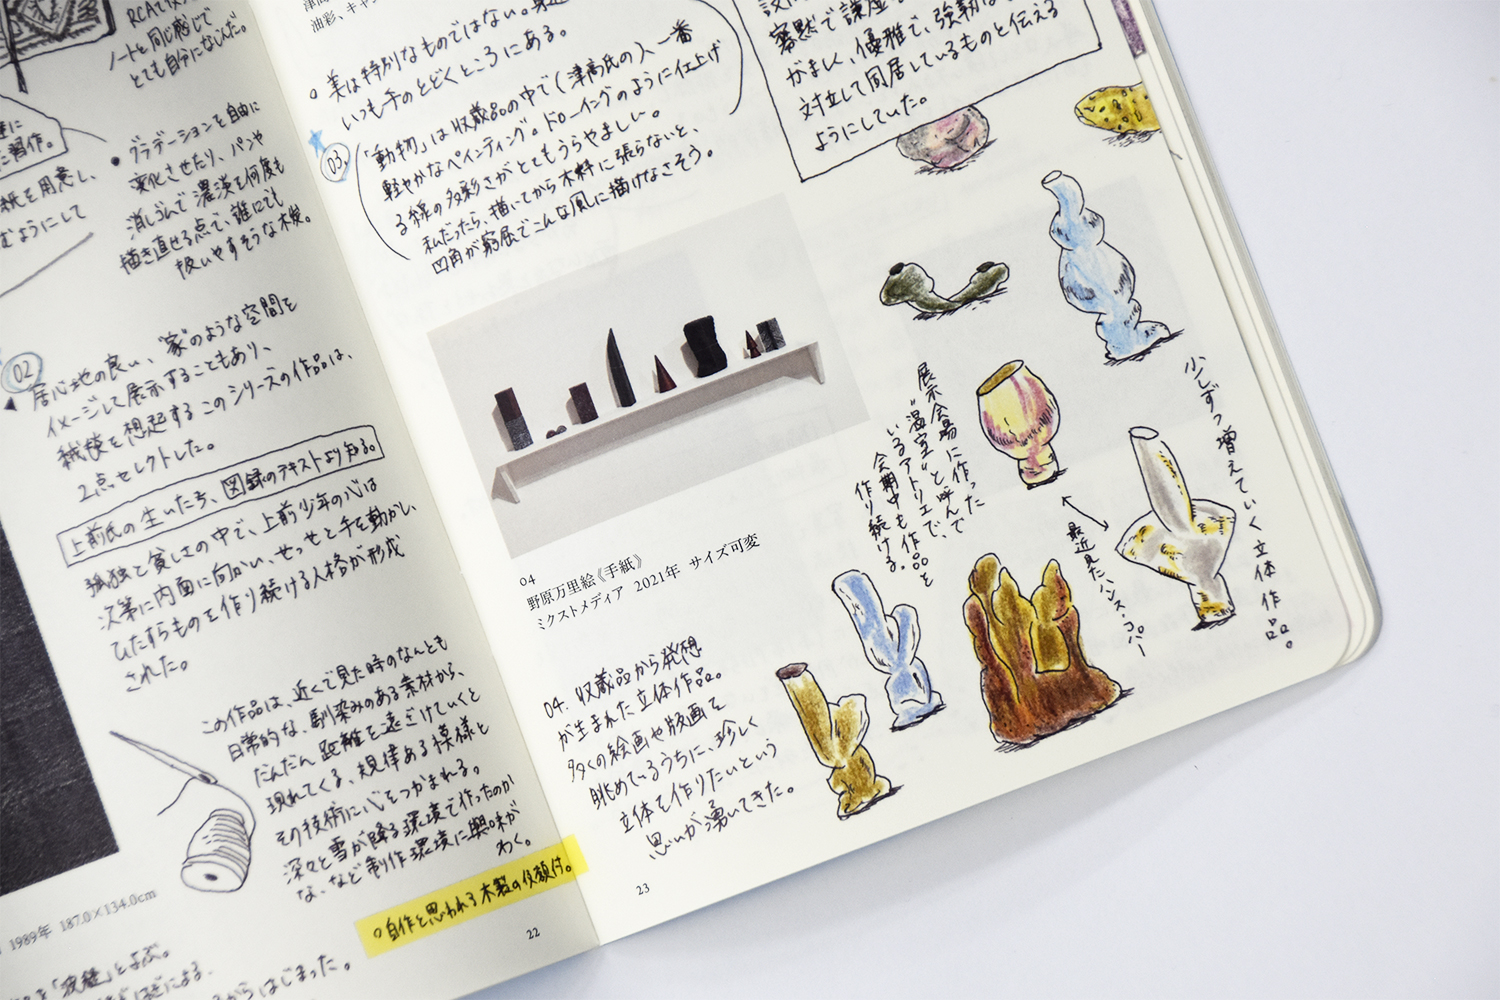 RCAで
ノートと同じ感じで
とても自分になじんだ。
に習作。
紙を用意し、
むようにして
• グラデーションを自由に
変化させたり、パンや
消しゴムで濃淡を何度も
描き直せる点で、誰にでも
扱いやすそうな木炭。
02
居心地の良い、"家"のような空間を
イメージして展示することもあり、
絨毯を想起するこのシリーズの作品は、
2点セレクトした。
上前氏の生いたち、図録のテキストより知る。
孤独と貧しさの中で、上前少年の心は
次第に内面に向かい、せっせと手を動かし、
ひたすらものを作り続ける人格が形成
された。
この作品は、近くで見た時のなんとも
日常的な、馴染みのある素材から、
だんだん距離を遠ざけていくと
現れてくる、規律ある模様と
その技術に心をつかまれる。
深々と雪が降る環境で作ったのか
な、など制作環境に興味が
わく。
○自作と思われる木製の仮額付。
1989年 187.0×134.0cm
22
油彩、キャン
○ 美は特別なものではない。
いつも手のとどくところにある。
03.
「動物」は収蔵品の中で(津高氏の)、一番
軽やかなペインティング。ドローイングのように仕上げ
る線の多彩さがとてもうらやましい。
私だったら、描いてから木枠に張らないと、
四角が窮屈でこんな風に描けなさそう。
寡黙で謙虚
がましく、優雅で、強靭
対立して同居しているものと伝える
ようにしていた。
04
野原万里絵《手紙》
ミクストメディア 2021年 サイズ可変
04. 収蔵品から発想
が生まれた立体作品。
多くの絵画や版画を
眺めているうちに、珍しく
立体を作りたいという
思いが湧いてきた。
展示会場に作った
"温室"と呼んで
いるアトリエで、
会期中も作品を
作り続ける。
最近見たハンス・コパー
少しずつ増えていく立体作品。
23